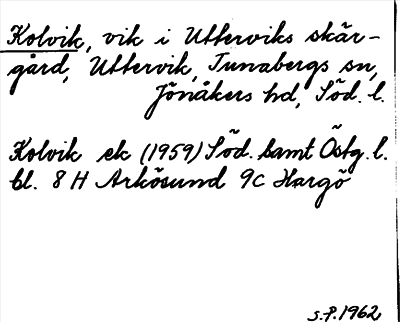 Kolvik, vik i Utterviks skär-
gård, Uttervik, Tunabergs sn,
Jönåkers hd, Söd. l.
Kolvik ek (1959) Söd. samt Östg. l.
bl. 8 H Arkösund 9C Hargö
S.P. 1962